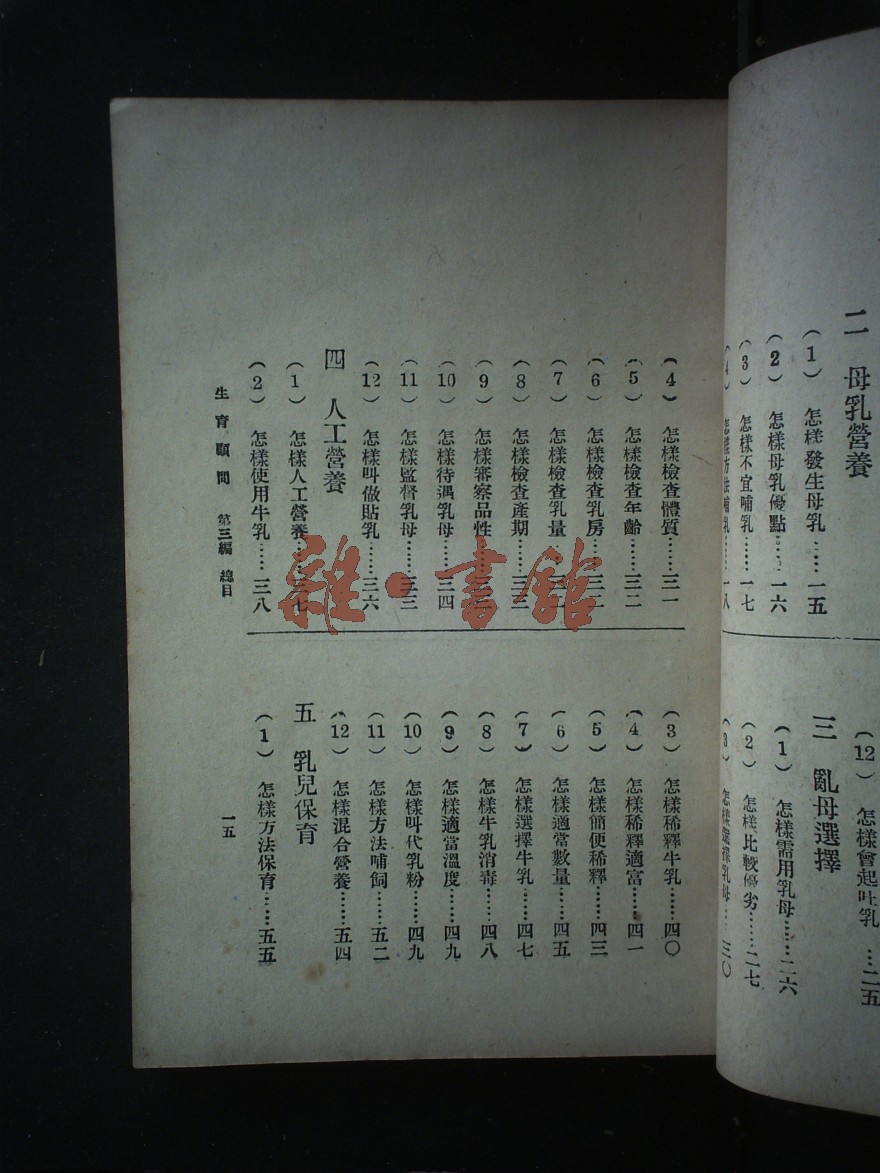 二 母乳營養
(1) 怎樣發生母乳……一五
(2) 怎樣母乳優點……一六
(3) 怎樣不宜哺乳……一七
(4) 怎樣方法哺乳……一八
(12) 怎樣會起吐乳…二五
三 亂母選擇
(1) 怎樣需用乳母……二六
(2) 怎樣比較優劣……二七
(3) 怎樣選擇乳母…三〇
(4) 怎樣檢查體質……三一
(5) 怎樣檢查年齡……三二
(6) 怎樣檢查乳房……
(7) 怎樣檢查乳量……
(8) 怎樣檢查產期……三三
(9) 怎樣審察品性……
(10) 怎樣待遇乳母……三四
(11) 怎樣監督乳母……
(12) 怎樣叫做貼乳……三六
四 人工營養
(1) 怎樣人工營養……三七
(2) 怎樣使用牛乳……三八
(3) 怎樣稀釋牛乳……四〇
(4) 怎樣稀釋適富……四一
(5) 怎樣簡便稀釋……四三
(6) 怎樣適當數量……四五
(7) 怎樣選擇牛乳……四七
(8) 怎樣牛乳消毒……四八
(9) 怎樣適當溫度……四九
(10) 怎樣叫代乳粉……四九
(11) 怎樣方法哺飼……五二
(12) 怎樣混合營養……五四
五 乳兒保育
(1) 怎樣方法保育……五五
生育顧問 第三編 總目
一五
雜·書館